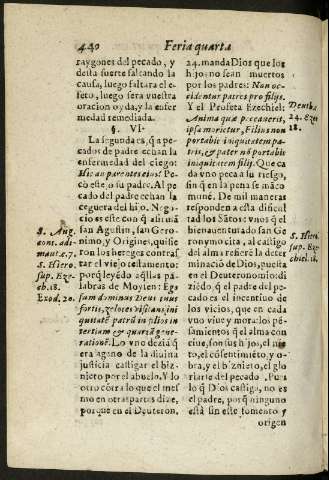 440 Feria quarta
rayzones del pecado, y
desta suerte faltando la
causa, luego faltara el e-
feto, luego sera vuestra
oracion oyda, y la enfer
medad remediada.
§. VI.
La segunda es, q̃ a pe-
cados de padre echan la
enfermedad del ciego:
Hic aut parentes eius? Pe-
cò este, o su padre. Al pe
cado del padre echan la
ceguera del hijo. Nego-
cio es este con q̃ assi mã
san Agustin, san Gero-
nimo, y Origines, quisie
ron los hereges contras-
tar el viejo testamento:
porq̃ leyẽdo aq̃llas pa-
labras de Moysen: Ego
sum dominus Deus tuus
fortis, zelotes visitans ini
quitatẽ patrũ in filios in
tertiam & quartã gene-
rationẽ. Lo vno dezia q̃
era ageno de la diuina
justicia castigar el biz-
nieto por el abuelo. Y lo
otro cõtra lo que el mes
mo en otra partes dize,
porque en el Deuteron.
S. Aug.
cont. adi-
mãt. c. 7.
S. Hiero.
sup. Eze-
ch. 18.
Exod. 20.
24. manda Dios que los
hijos no sean muertos
por los padres: Non oc-
cidentur patres pro filijs.
Y el Profeta Ezechiel:
Anima quæ peccauerit,
ipsa morietur, Filius non
portabit iniquitatem pa-
tris, & pater nõ portabit
iniquitatem filij. Que ca
da vno peca a su riesgo,
sin q̃ en la pena se mãco
mune. De mil maneras
responden a esta dificul
tad los Sãtos: vnos q̃ el
bienauenturado san Ge
ronymo cita, al castigo
del alma refieren la deter
minacion de Dios, pues
en el Deuteronomio: di
ziẽdo, q̃ el pad. del pe-
cado es el incentiuo de
los vicios, que en cada
vno viue y mora: los pẽ-
samientos q̃ el alma con
ciue, son sus hijos, el nie
to, el cõsentimiẽto, y o-
bra, y el biznieto, el glo
riarse del pecado. Pues
lo q̃ Dios castiga, no es
el padre, porq̃ ninguno
està sin este fomento y
origen
Deut.
24. Eze
18.
S. Hiero.
sup. Eze-
chiel. 18.